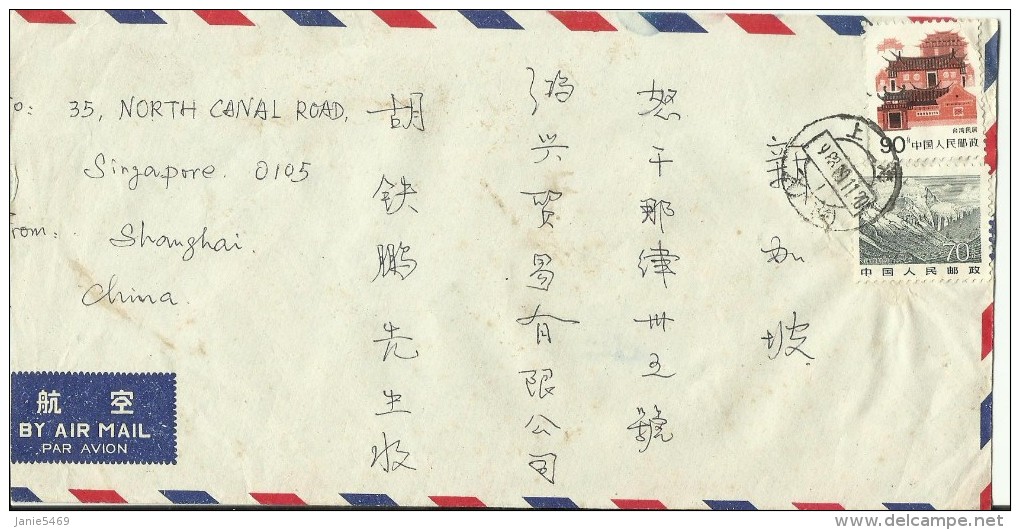 To: 35, NORTH CANAL ROAD,
Singapore. 0105
From: Shanghai.
China.
新加坡
怒干那律卅五號
鴻兴贸易有限公司
胡铁鹏先生收
台湾民居
90分 中国人民邮政
70
中国人民邮政
上海
航空
BY AIR MAIL
PAR AVION
Janie5469
delcampe.net